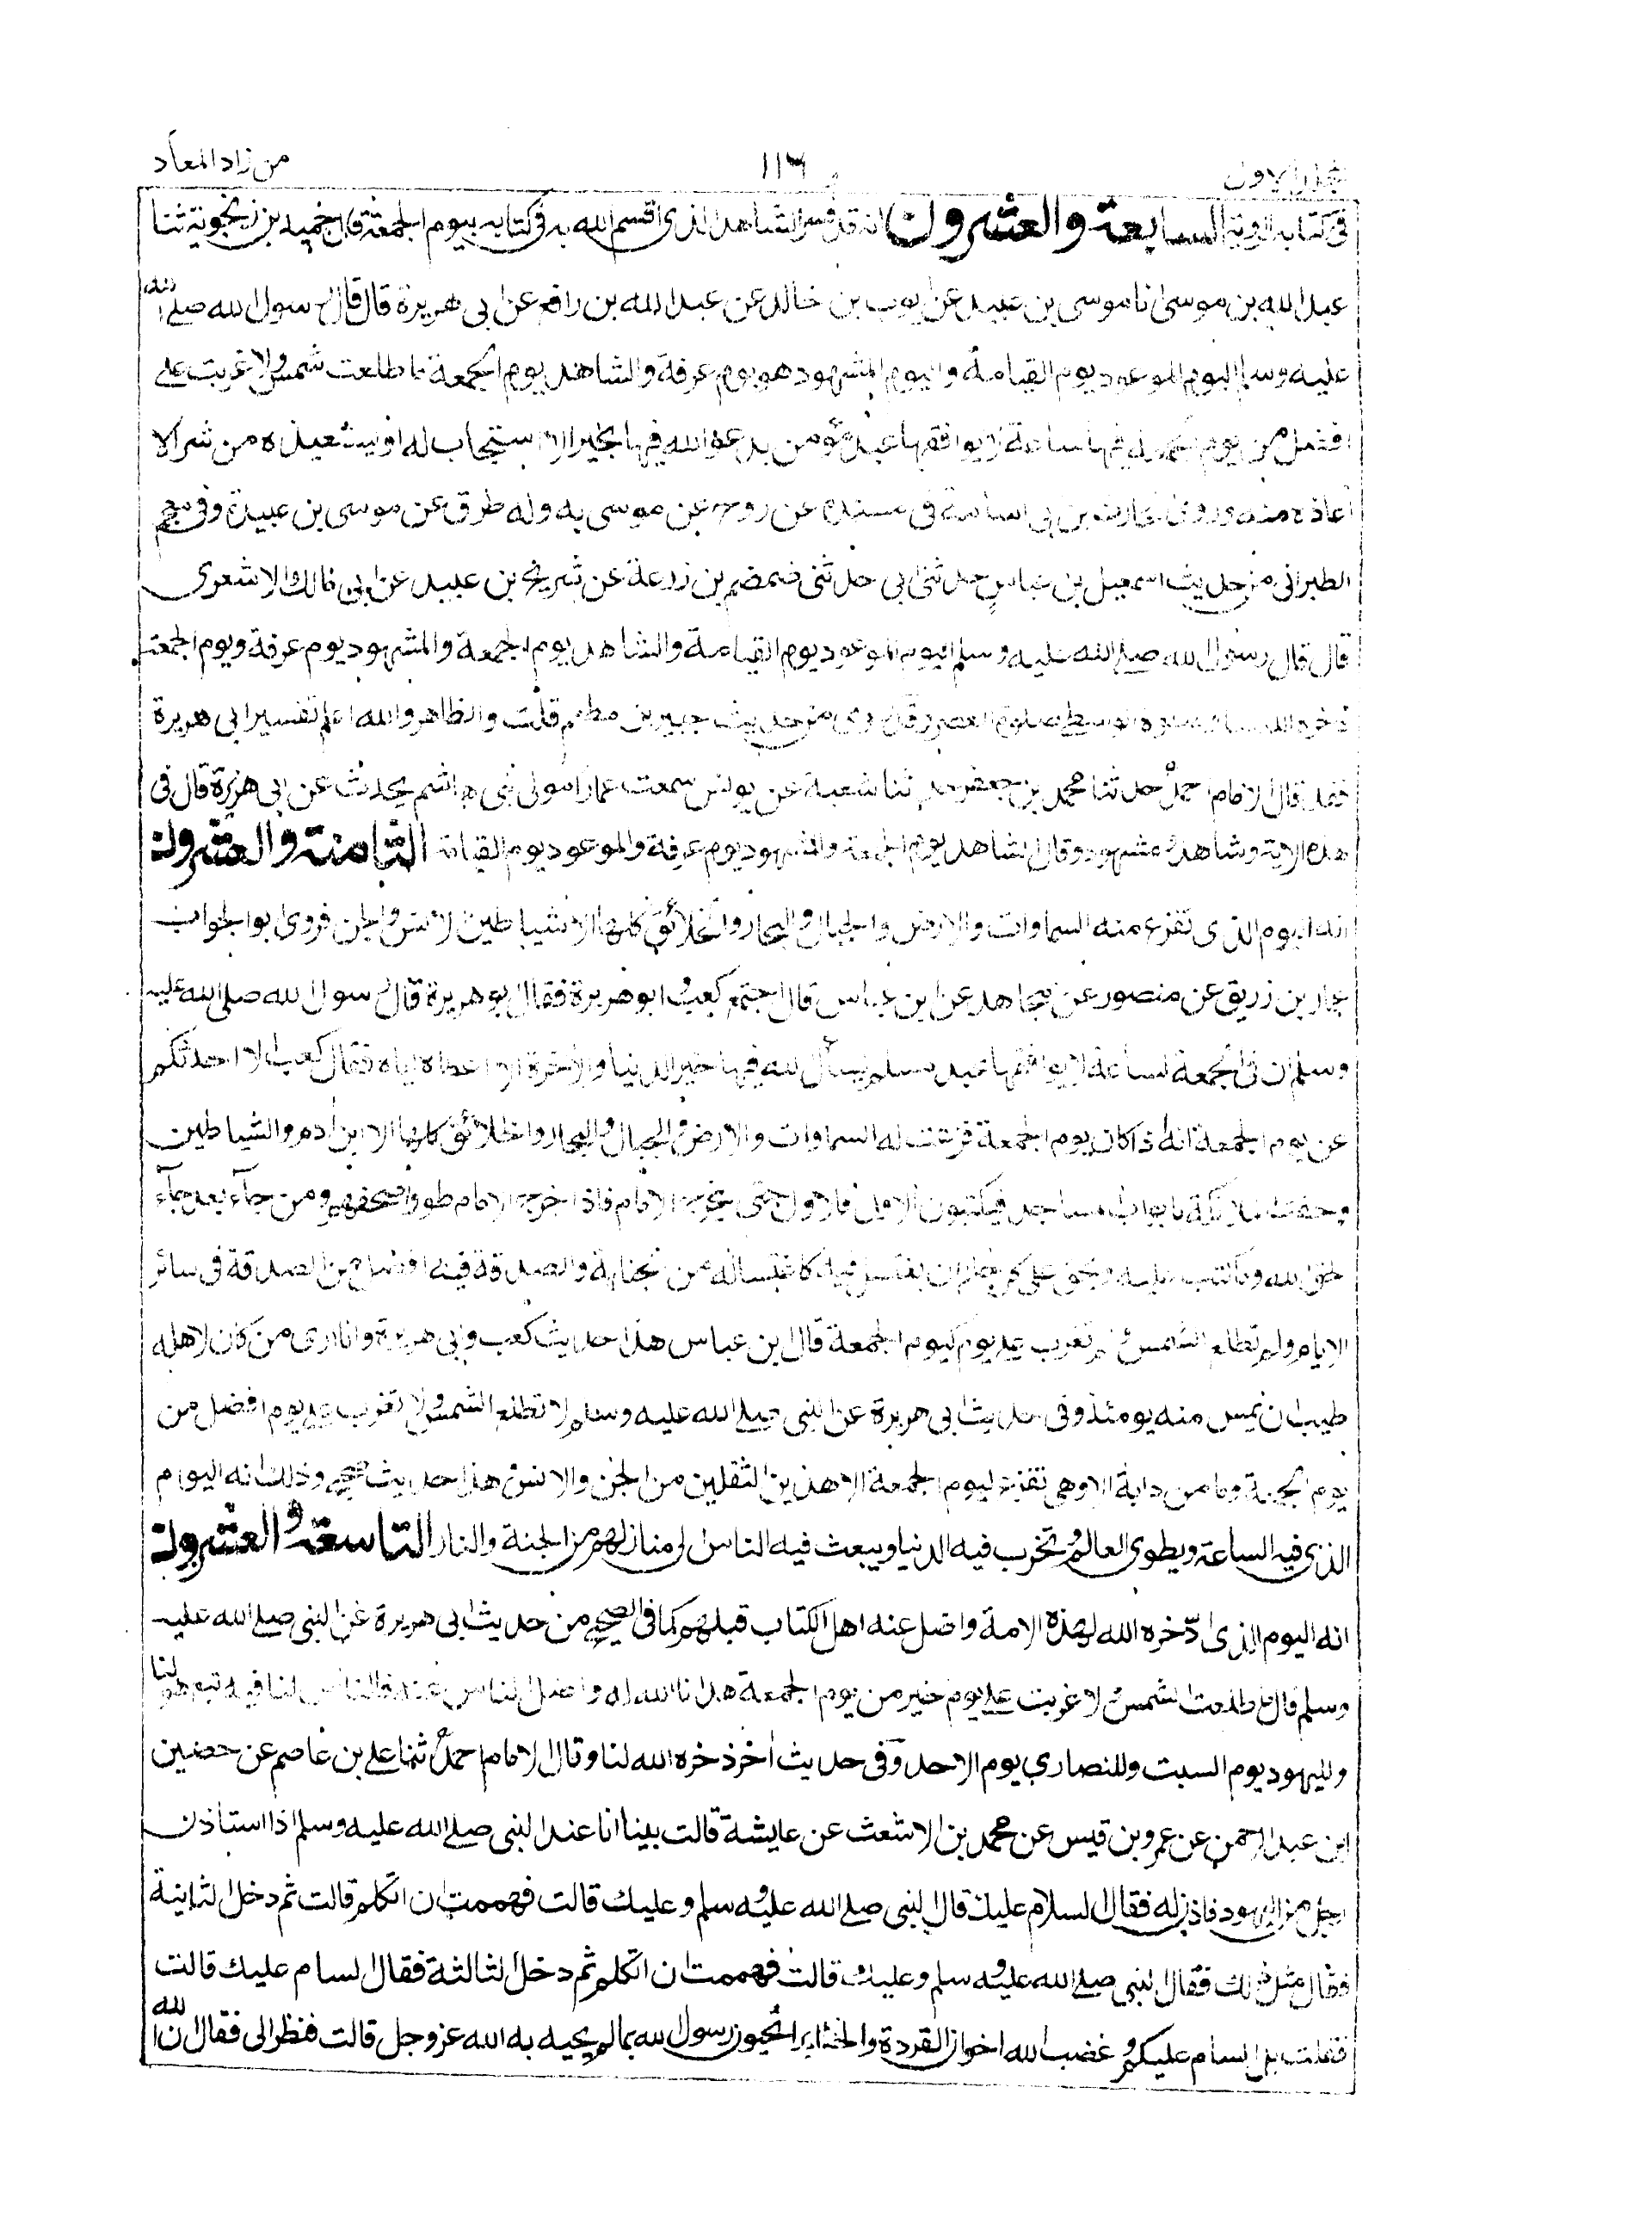 من زاد المعاد
١١٦
المجلد الاول
فى كتاب الرؤية السابعة والعشرون انه قد فسر الشاهد الذى اقسم الله به فى كتابه بيوم الجمعة قال حميد بن زنجوية ثنا
عبد الله بن موسى انا موسى بن عبيد عن ايوب بن خالد عن عبد الله بن رافع عن ابى هريرة قال قال رسول الله صلى الله
عليه وسلم اليوم الموعود يوم القيامة واليوم المشهود هو يوم عرفة والشاهد يوم الجمعة ما طلعت شمس ولا غربت على
افضل من يوم الجمعة فيها ساعة لا يوافقها عبد مؤمن يدعو الله فيها بخير الا استجاب له او يستعيذه من شر الا
اعاذه منه وروى الحارث بن ابى اسامة فى مسنده عن روح عن موسى به وله طرق عن موسى بن عبيدة وفى معجم
الطبرانى من حديث اسمعيل بن عباس حدثنى ابى حدثنى ضمضم بن زرعة عن شريح بن عبيد عن ابى مالك الاشعرى
قال قال رسول الله صلى الله عليه وسلم اليوم الموعود يوم القيامة والشاهد يوم الجمعة والمشهود يوم عرفة ويوم الجمعة
ذخره الله لنا وصلوة الوسطى صلوة العصر وقد روى من حديث جبير بن مطعم قلت والظاهر والله اعلم تفسير ابى هريرة
فقد قال الامام احمد حدثنا محمد بن جعفر حدثنا شعبة عن يونس سمعت عمارا مولى بنى هاشم يحدث عن ابى هريرة قال فى
هذه الاية وشاهد ومشهود وقال الشاهد يوم الجمعة والمشهود يوم عرفة والموعود يوم القيامة الثامنة والعشرون
انه اليوم الذى تفزع منه السماوات والارض والجبال والبحار والخلائق كلها الا شياطين الانس والجن فروى ابو الجواب
عمار بن زريق عن منصور عن مجاهد عن ابن عباس قال اجتمع كعب وابو هريرة فقال ابو هريرة قال رسول الله صلى الله عليه
وسلم ان فى الجمعة لساعة لا يوافقها عبد مسلم يسأل الله فيها خير الدنيا والاخرة الا اعطاه اياه فقال كعب الا احدثكم
عن يوم الجمعة انه اذا كان يوم الجمعة فزعت له السماوات والارض والجبال والبحار والخلائق كلها الا ابن ادم والشياطين
وحفت الملائكة بابواب المساجد فيكتبون الاول فالاول حتى يخرج الامام فاذا خرج الامام طووا صحفهم ومن جآء بعد جآء
لحق الله وما كتب عليه ويحق على كل حالم ان يغتسل فيه كاغتساله من الجنابة والصدقة فيه افضل من الصدقة فى سائر
الايام ولم تطلع الشمس ولم تغرب على يوم كيوم الجمعة قال ابن عباس هذا حديث كعب وابى هريرة وانا ارى من كان لاهله
طيب ان يمس منه يومئذ وفى حديث ابى هريرة عن النبى صلى الله عليه وسلم لا تطلع الشمس ولا تغرب على يوم افضل من
يوم الجمعة وما من دابة الا وهى تفزع ليوم الجمعة الا هذين الثقلين من الجن والانس هذا حديث صحيح وذلك انه اليوم
الذى فيه الساعة ويطوى العالم وتخرب فيه الدنيا ويبعث فيه الناس الى منازلهم من الجنة والنار التاسعة والعشرون
انه اليوم الذى ادّخره الله لهذه الامة واضل عنه اهل الكتاب قبلهم كما فى الصحيح من حديث ابى هريرة عن النبى صلى الله عليه
وسلم قال ما طلعت الشمس ولا غربت على يوم خير من يوم الجمعة هدانا الله له واضل الناس عنه فالناس لنا فيه تبع هو لنا
ولليهود يوم السبت وللنصارى يوم الاحد وفى حديث آخر ذخره الله لنا وقال الامام احمد ثنا على بن عاصم عن حصين
ابن عبد الرحمن عن عمرو بن قيس عن محمد بن الاشعث عن عايشة قالت بينا انا عند النبى صلى الله عليه وسلم اذا استاذن
رجل من اليهود فاذن له فقال السلام عليك قال النبى صلى الله عليه وسلم وعليك قالت فهممت ان اتكلم قالت ثم دخل الثانية
فقال مثل ذلك فقال النبى صلى الله عليه وسلم وعليك قالت فهممت ان اتكلم ثم دخل الثالثة فقال السام عليك قالت
فقلت بل السام عليكم وغضب الله اخوان القردة والخنازير اتحيون رسول الله بما لم يحيه به الله عز وجل قالت فنظر الى فقال ان الله